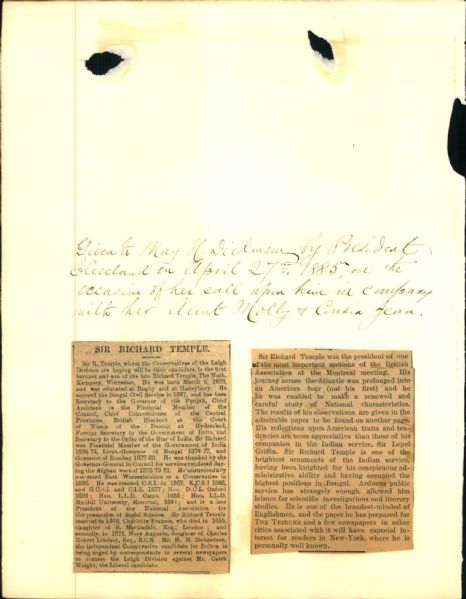 Given to May H. Dickinson by President
Cleveland on April 27th 1885, on the
occasion of her call upon him in company
with her Aunt Molly &
SIR RICHARD TEMPLE.
Sir R. Temple, whom the Conservatives of the Leigh
Division are hoping will be their candidate, is the first
baronet and son of the late Richard Temple, The Nash,
Kempsey, Worcester. He was born March 8, 1826,
and was educated at Rugby and at Haileybury. He
entered the Bengal Civil Service in 1847, and has been
Secretary to the Governor of the Punjab, Chief
Assistant to the Financial Member of the
Council, Chief Commissioner of the Central
Provinces, British Resident at the Court
of Nizam of the Deccan at Hyderabad,
Foreign Secretary to the Government of India, and
Secretary to the Order of the Star of India. Sir Richard
was Financial Member of the Government of India
1868 74, Lieut.-Governor of Bengal 1874-77, and
Governor of Bombay 1877-80. He was thanked by the
Governor-General in Council for services rendered during
the Afghan wars of 1878 79 80. He unsuccessfully
contested East Worcestershire as a Conservative in
1880. He was created C.S.I. in 1866, K.C.S.I
and G.C.S.I. and C.I.E. 1877; Hon. D.C.L. Oxford
1880; Hon. L.L.D. Camb. 1883; Hon. LL.D.
McGill University, Montreal, 1884; and is a late
President of the National Association for
the promotion of Social Science. Sir Richard Temple
married in 1849, Charlotte Frances, who died in 1855,
daughter of B. Martindale, Esq., London; and
secondly, in 1871, Mary Augusta, daughter of Charles
Robert Lindsay, Esq., B.C.S. Mr. H. M. Richardson,
the independent Conservative candidate for Bolton is
being urged by correspondents in several newspapers
to contest the Leigh Division against Mr. Caleb
Wright, the Liberal candidate.
Sir Richard Temple was the president of one
of the most important sections of the British
Association at the Montreal meeting. His
journey across the Atlantic was prolonged into
an American tour (not his first) and he
was enabled to make a renewed and
careful study of National characteristics.
The results of his observations are given in the
admirable paper to be found on another page.
His reflections upon American traits and ten-
dencies are more appreciative than those of his
companion in the Indian service, Sir Lepel
Griffin. Sir Richard Temple is one of the
brightest ornaments of the Indian service,
having been knighted for his conspicuous ad-
ministrative ability and having occupied the
highest positions in Bengal. Arduous public
service has strangely enough allowed him
leisure for scientific investigations and literary
studies. He is one of the broadest-minded of
Englishmen, and the paper he has prepared for
THE TRIBUNE and a few newspapers in other
cities associated with it will have especial in-
terest for readers in New-York, where he is
personally well known.